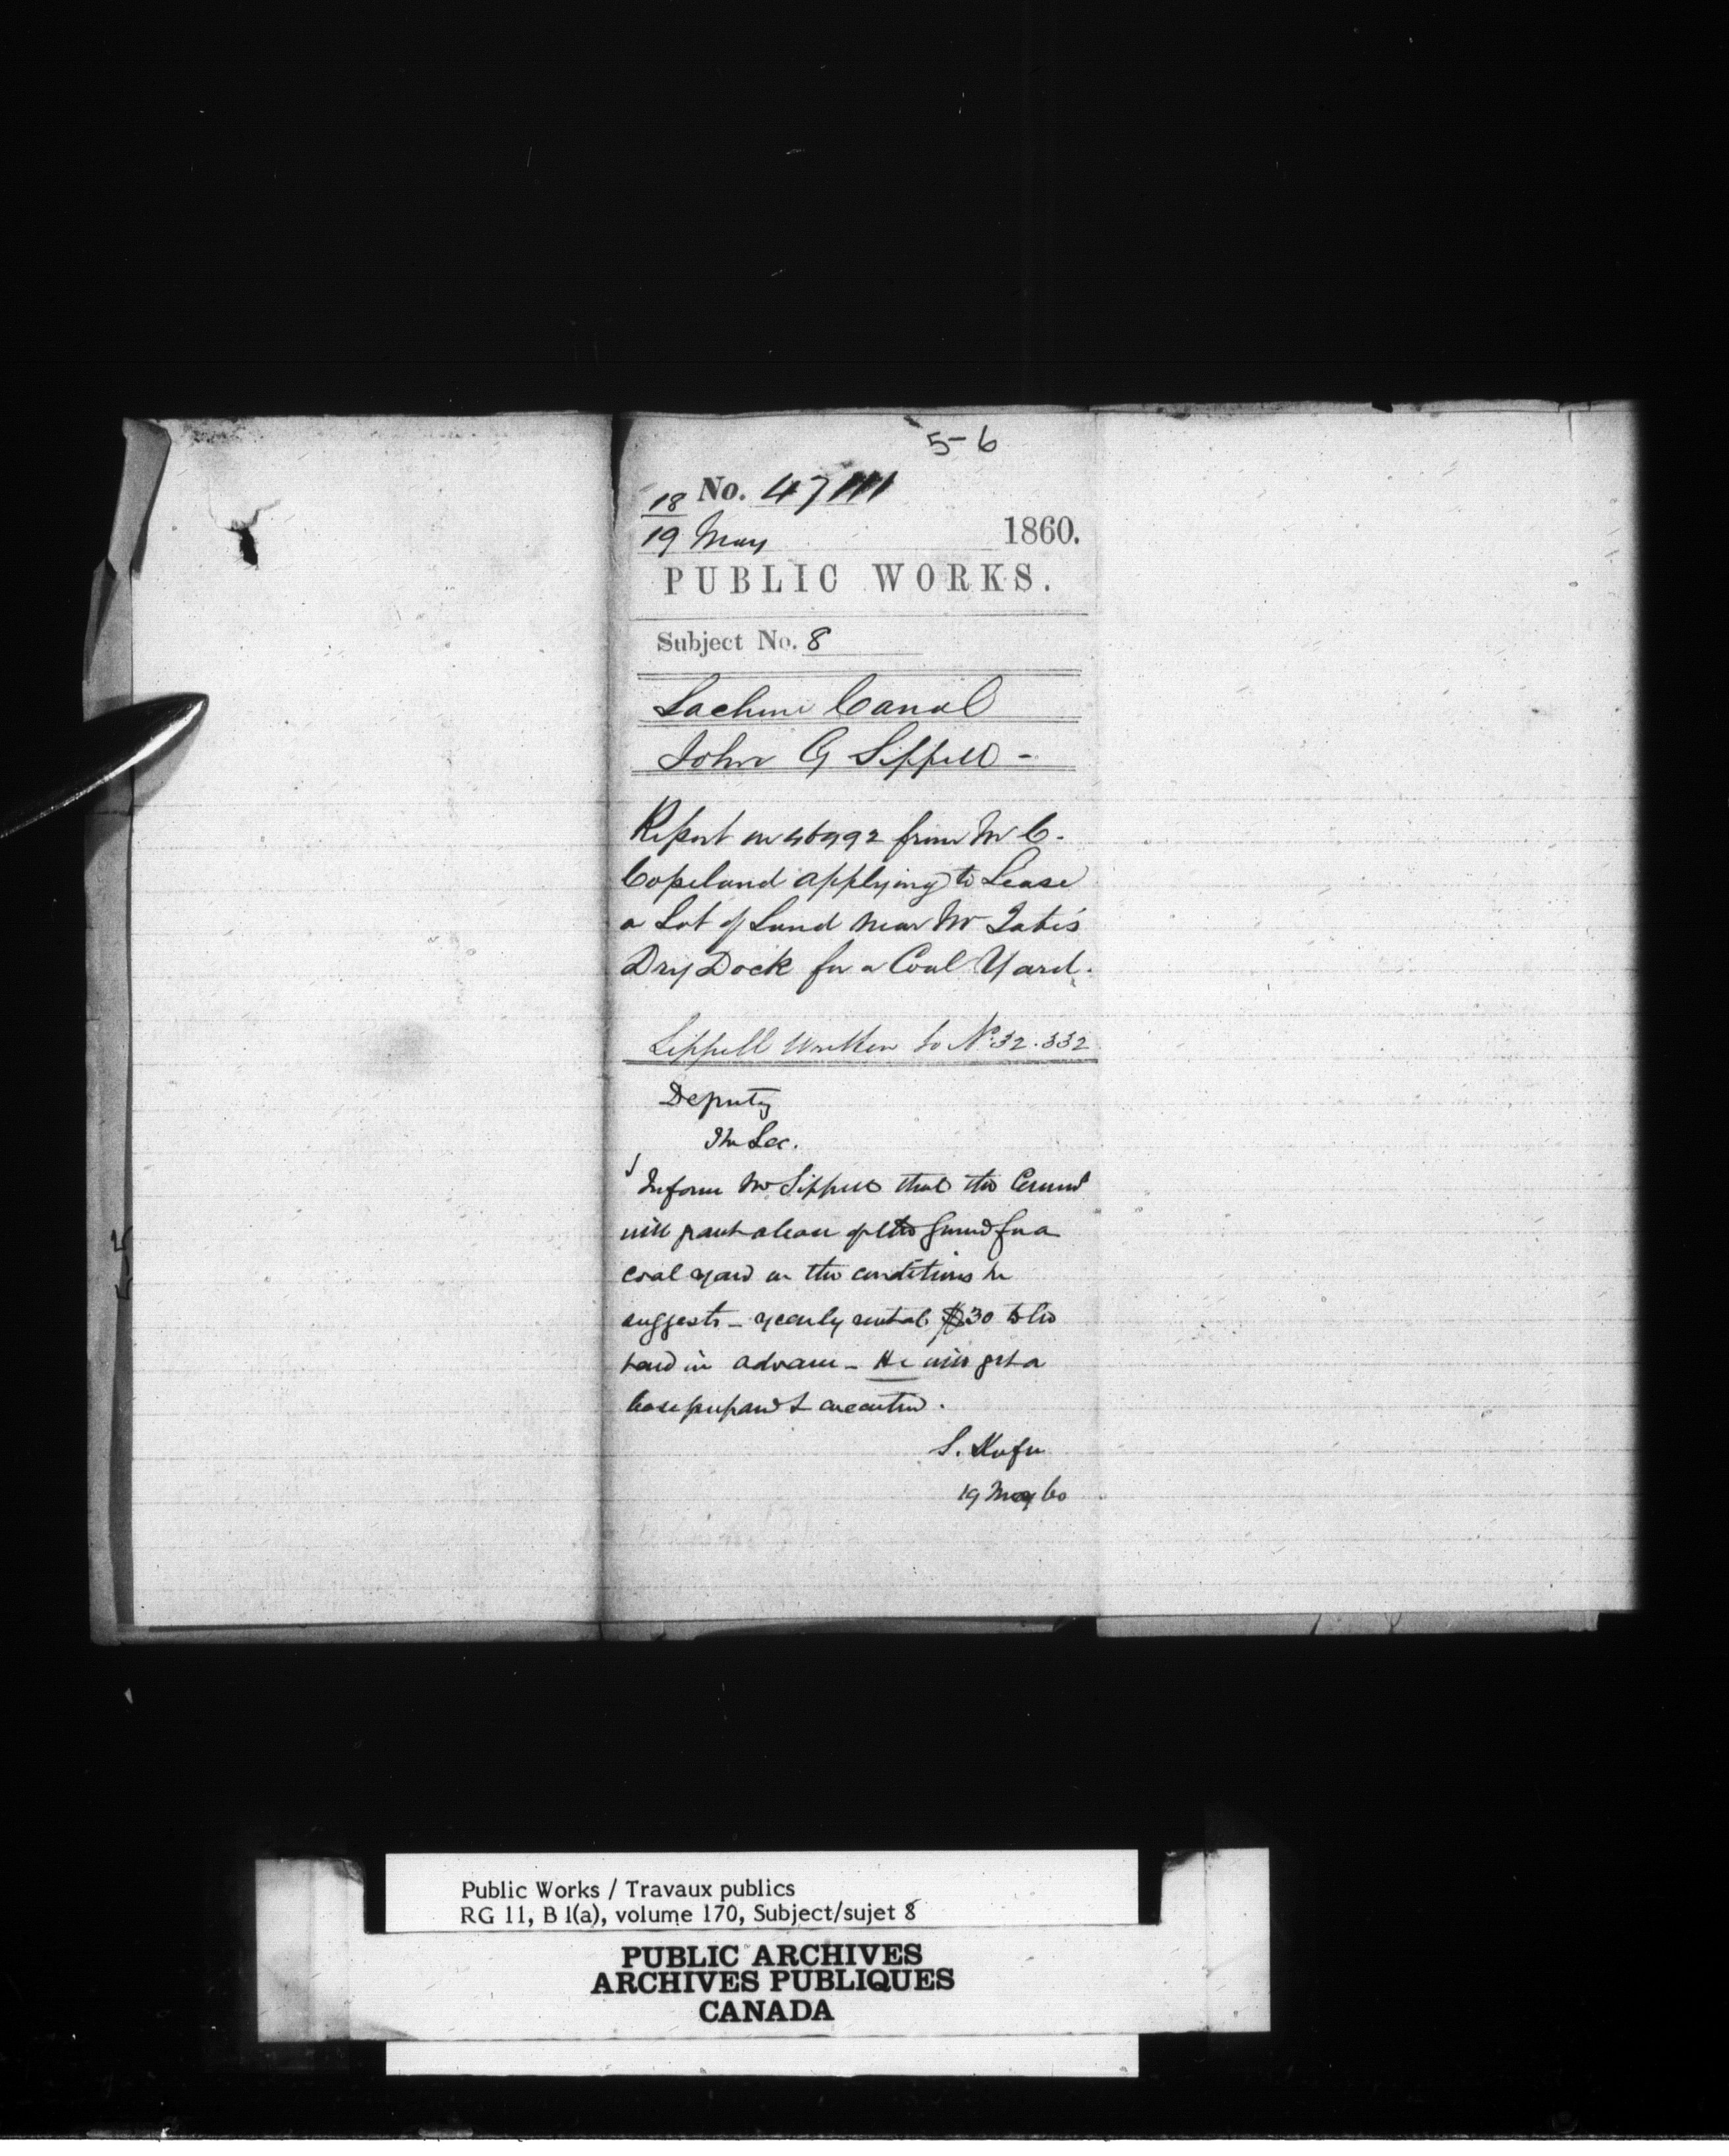 5-6
No. 47111
18
19 May 1860.
PUBLIC WORKS.
Subject No. 8
Lachine Canal
John G Sippell -
Report on 46992 from Mr C.
Copeland applying to Lease
a Lot of Land near Mr Tate's
Dry Dock for a Coal Yard.
Sippell written to No. 32.332
Deputy
The Sec.
Inform Mr Sippell that the Commr
will grant a lease of the ground for a
coal yard on the conditions he
suggests - yearly rental $30 to be
paid in advance - He will get a
lease prepared & executed.
S.
19 May 60
55
Public Works / Travaux publics
RG 11, B 1(a), volume 170, Subject/sujet 8
PUBLIC ARCHIVES
ARCHIVES PUBLIQUES
CANADA